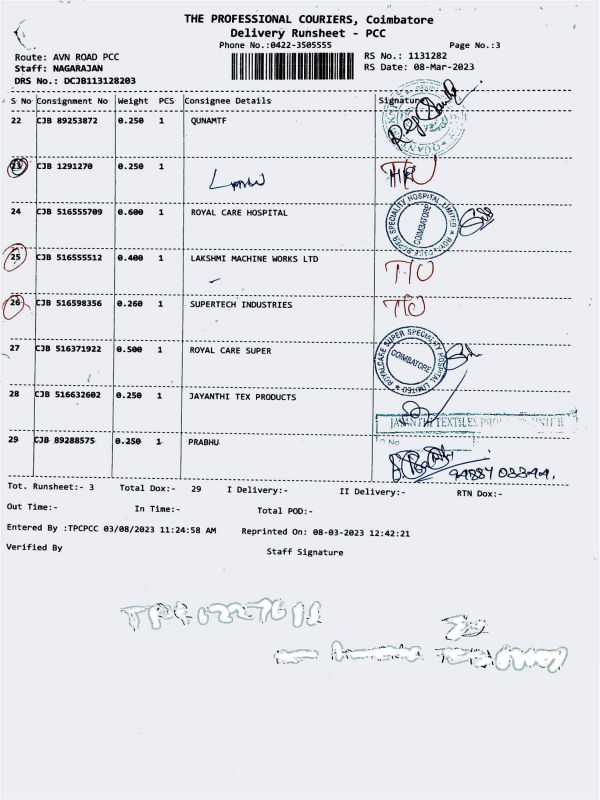 THE PROFESSIONAL COURIERS, Coimbatore
Delivery Runsheet - PCC
Phone No.:0422-3505555
Page No.:3
Route: AVN ROAD PCC
RS No.: 1131282
Staff: NAGARAJAN
RS Date: 08-Mar-2023
DRS No.: DCJB113128203
S No Consignment No Weight PCS Consignee Details Signature
22 CJB 89253872 0.250 1 QUNAMTF
23 CJB 1291270 0.250 1
T/O
24 CJB 516555709 0.600 1 ROYAL CARE HOSPITAL
SUPER SPECIALITY HOSPITAL LIMITED
COIMBATORE
25 CJB 516555512 0.400 1 LAKSHMI MACHINE WORKS LTD
T/O
26 CJB 516598356 0.260 1 SUPERTECH INDUSTRIES
T/O
27 CJB 516371922 0.500 1 ROYAL CARE SUPER
ROYALCARE SUPER SPECIALITY HOSPITAL LIMITED
COIMBATORE
28 CJB 516632602 0.250 1 JAYANTHI TEX PRODUCTS
JAYANTHI TEXTILES
29 CJB 89288575 0.250 1 PRABHU
Tot. Runsheet:- 3 Total Dox:- 29 I Delivery:- II Delivery:- RTN Dox:-
Out Time:- In Time:- Total POD:-
Entered By :TPCPCC 03/08/2023 11:24:58 AM Reprinted On: 08-03-2023 12:42:21
Verified By
Staff Signature